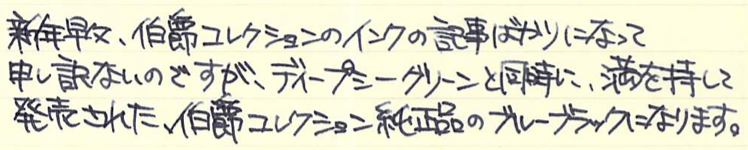 新年早々、伯爵コレクションのインクの記事ばかりになって
申し訳ないのですが、ディープシーグリーンと同時に、満を持して
発売された、伯爵コレクション純正品のブルーブラックになります。